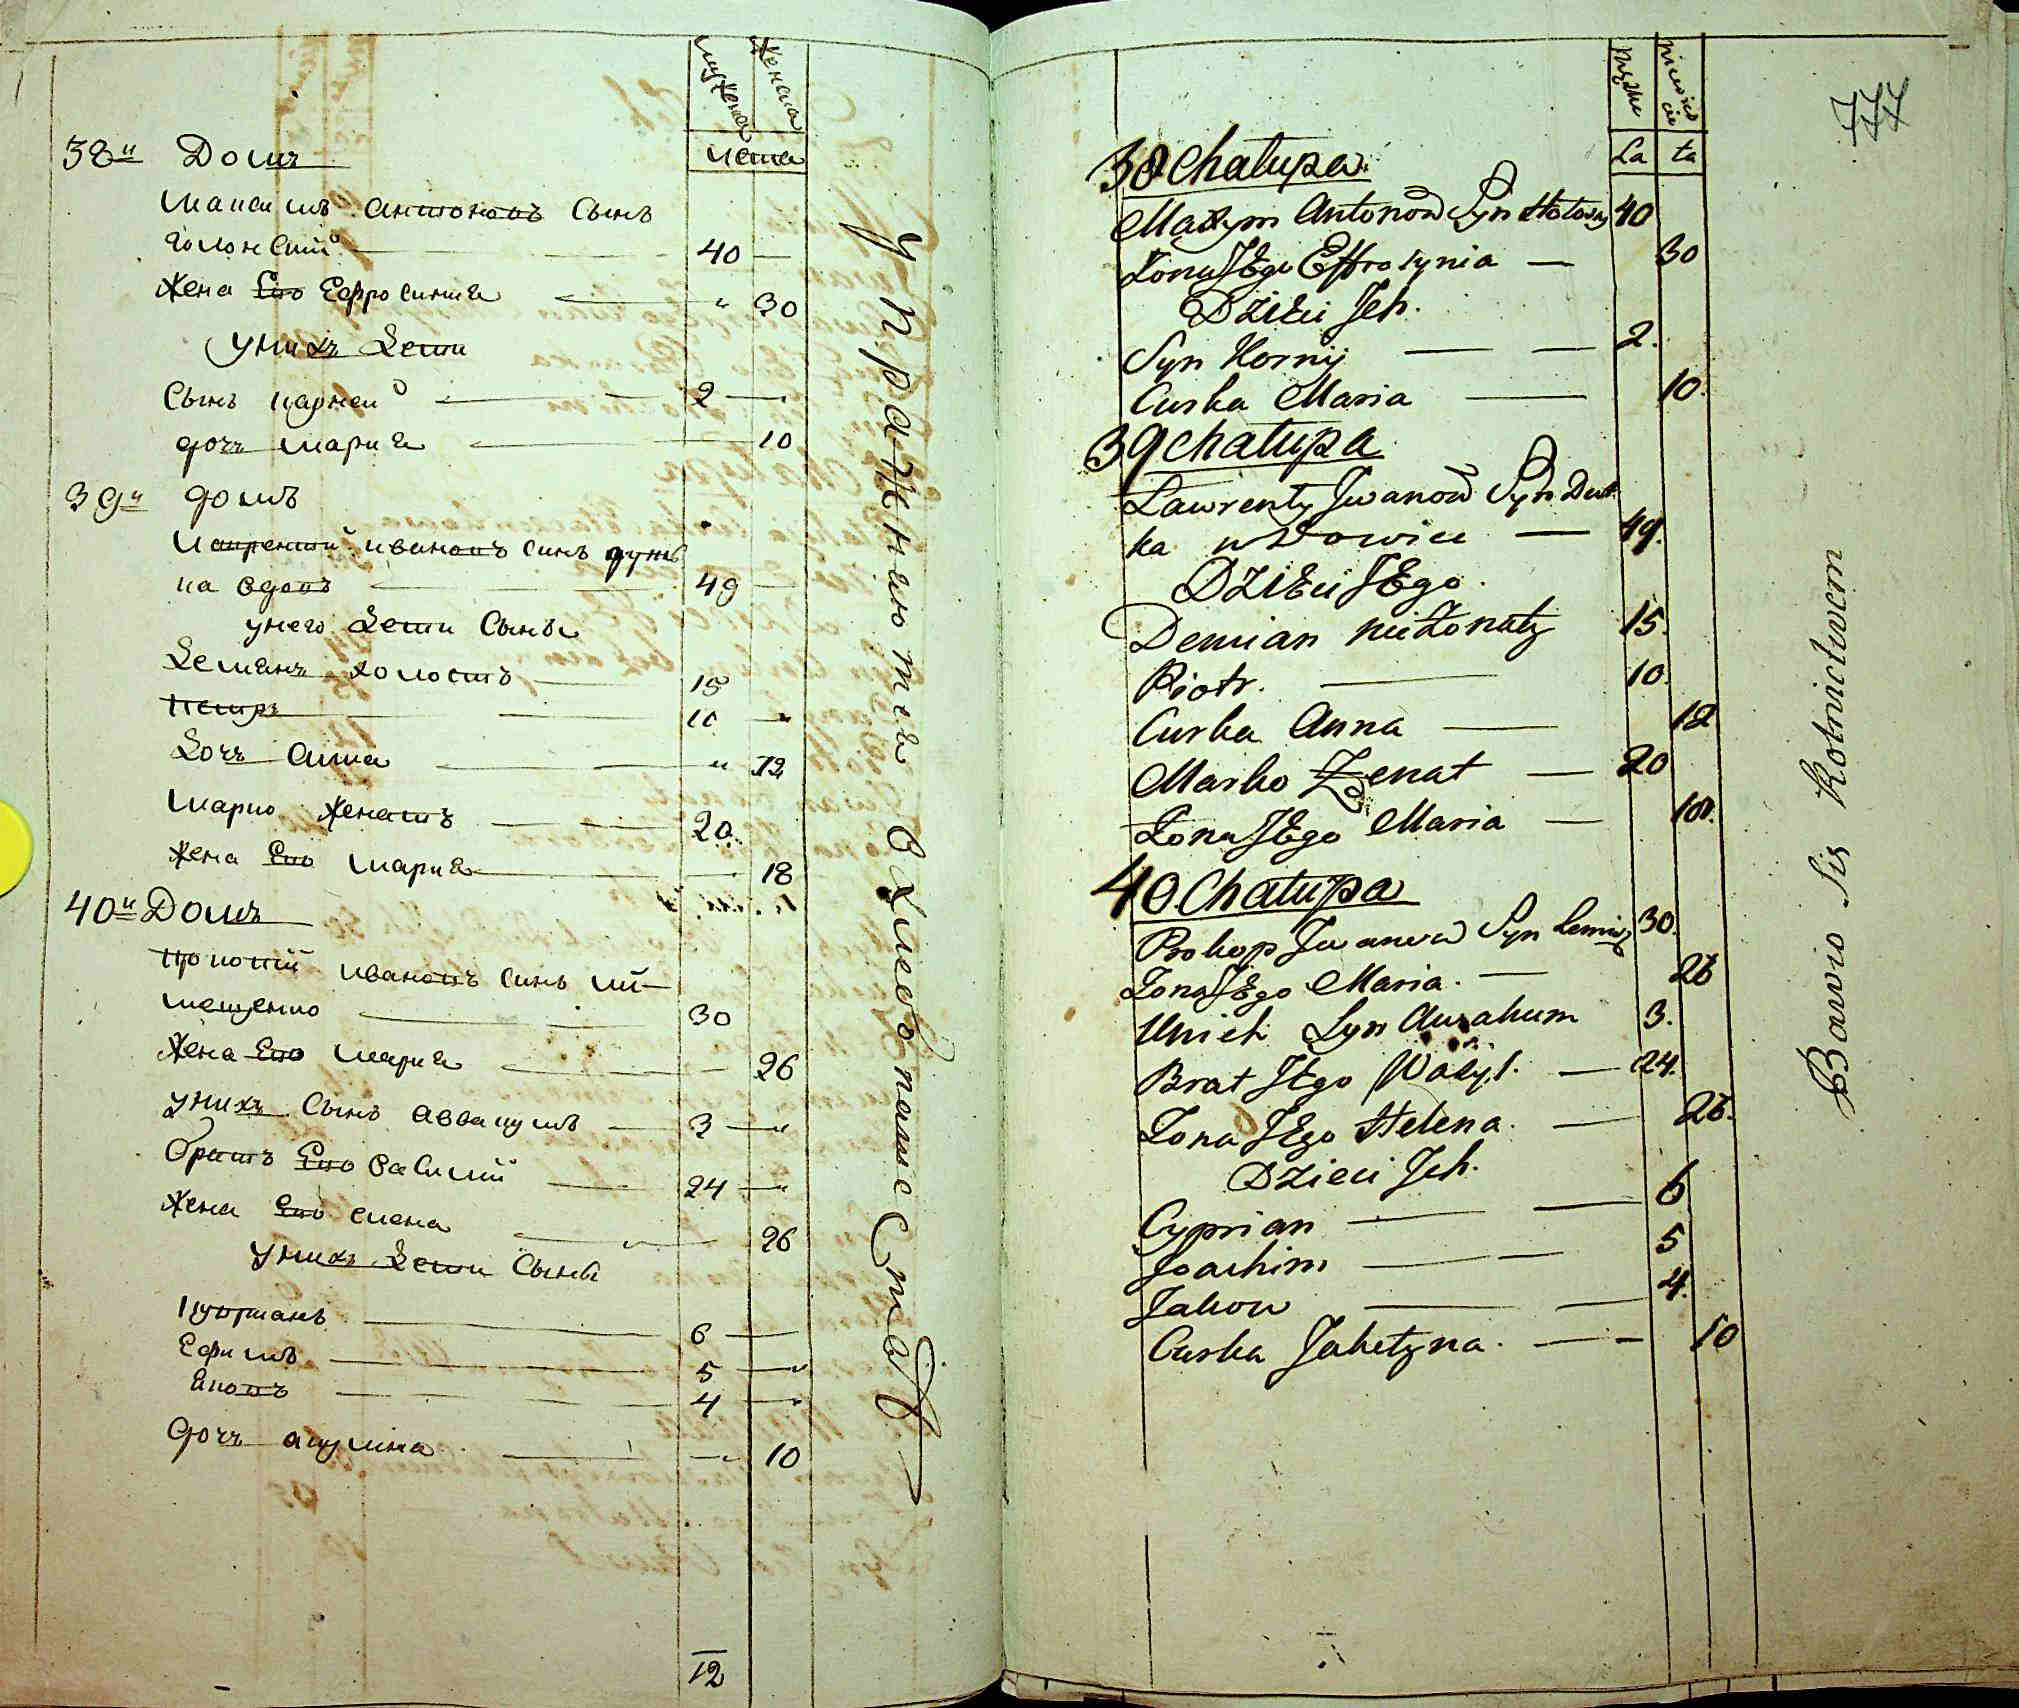 мужеска женска
лета
38й Домъ
Максимъ антоновъ сынъ
40
жена Его Ефросинія " 30
у нихъ Дети
Сынъ карней 2
дочь марія 10
39й домъ
Лаврентій ивановъ синъ дут
ка вдовъ 49
у него Дети Сыны
Демянъ холостъ 15
Петръ 10 "
Дочь анна " 12
марко женатъ 20
жена Его марія 18
40й Домъ
прокопій ивановъ синъ
30
жена Его марія 26
у нихъ Сынъ аввакумъ 3 "
братъ Его василій 24 "
жена Его елена 26
у нихъ Дети Сыны
купріанъ 6
Ефимъ 5 "
яковъ 4 "
дочь акулина 10
12
упражняются в хлебопашестве
777
Męzkie
La ta
38 Chałupa
Maxym Antonow Syn 40
Żona JEgo Effrosynia 30
DziEci Jch.
Syn Korniy 2.
Curka Maria 10.
39 Chałupa
Lawrenty Jwanow Syn Dut
ka wdowiec 49.
DziEci JEgo.
Demian nieżonaty 15.
Piotr. 10.
Curka Anna 12
Marko Żenat 20
Żona JEgo Maria 18.
40. Chałupa
Prokop Jwanow Syn 30.
Żona JEgo Maria. 26
Unich Syn Awakum 3.
Brat JEgo Wasyl. 24.
Żona JEgo Helena. 26.
Dzieci Jch.
Cyprian 6
Joachim 5
Jakow 4.
Curka Jakilyna. 10
Bawio Się Rolnictwem